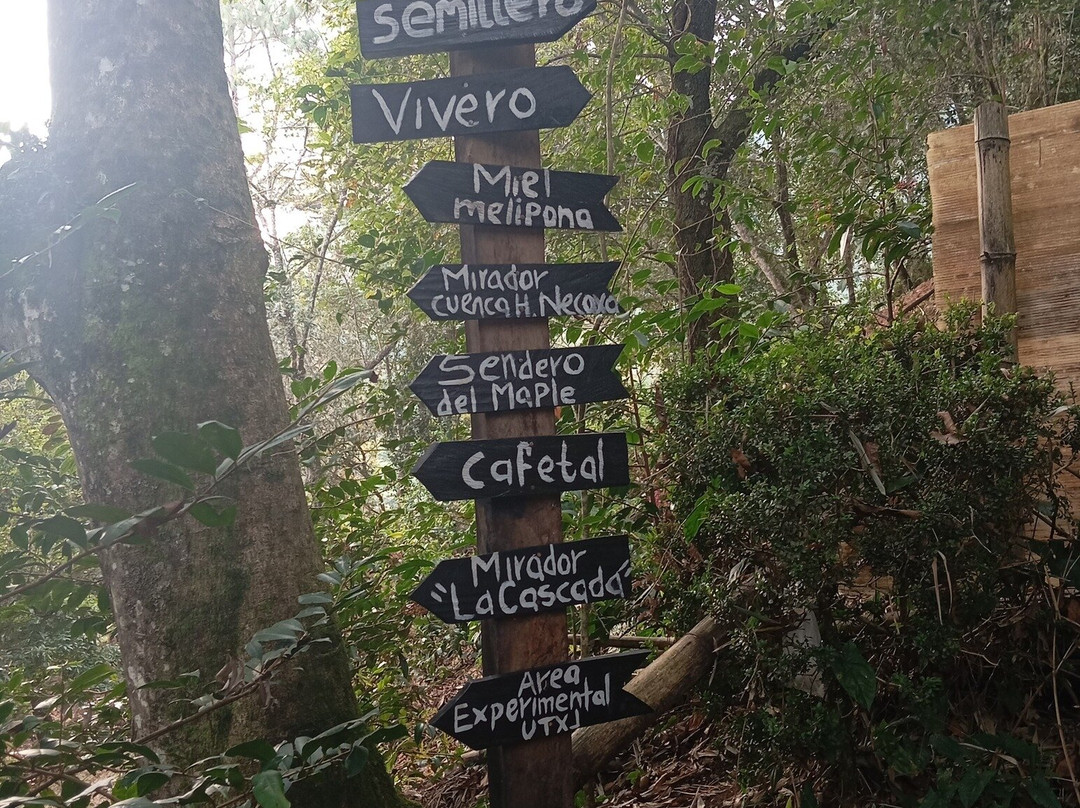 semillero
Vivero
Miel
melipona
Mirador
cuenca H. Necaxa
Sendero
del Maple
Cafetal
Mirador
"La Cascada"
Area
Experimental
UTXJ